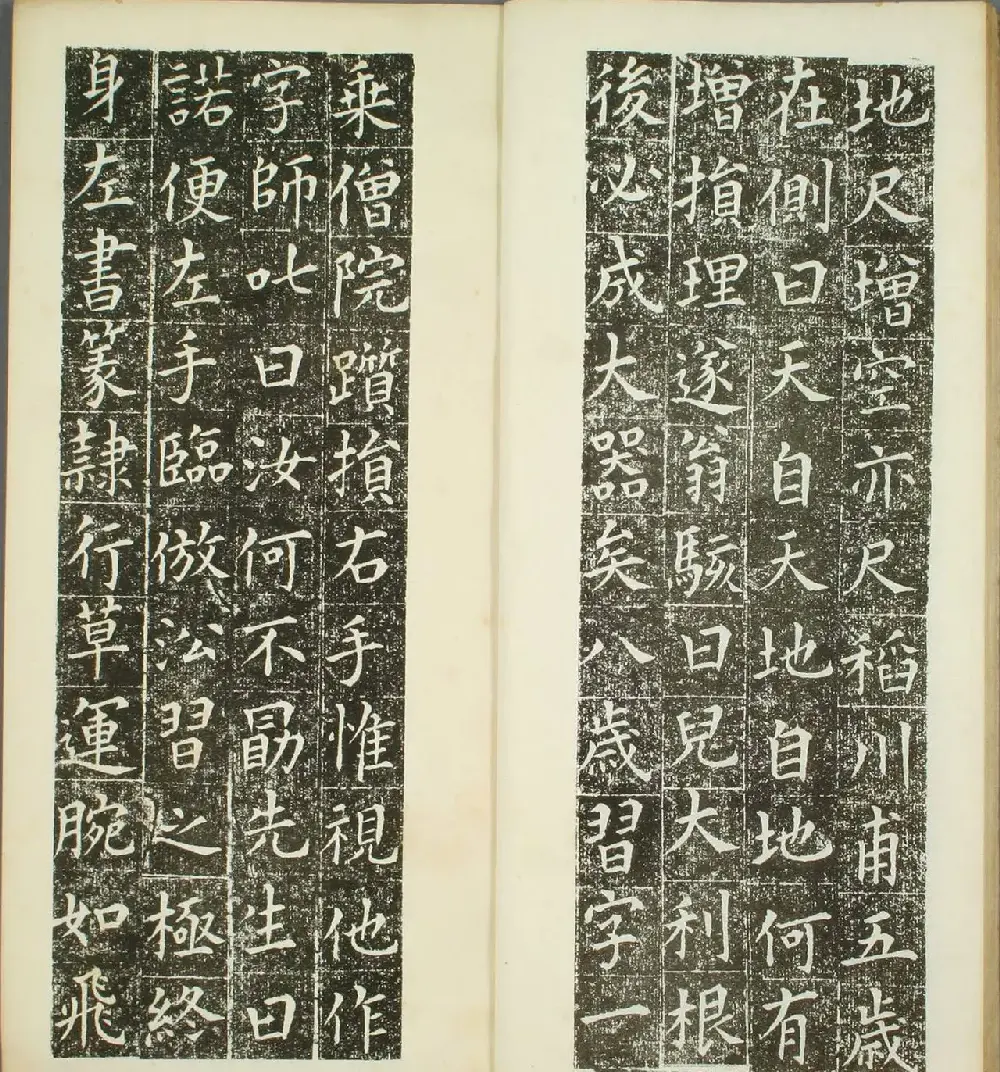 地尺增空亦尺稻川甫五歲
在側曰天自天地自地何有
增損理遂翁駭曰兒大利根
後必成大器矣八歲習字一
乘僧院躓損右手惟視他作
字師叱曰汝何不勗先生曰
諾便左手臨倣泓習之極終
身左書篆隷行草運腕如飛